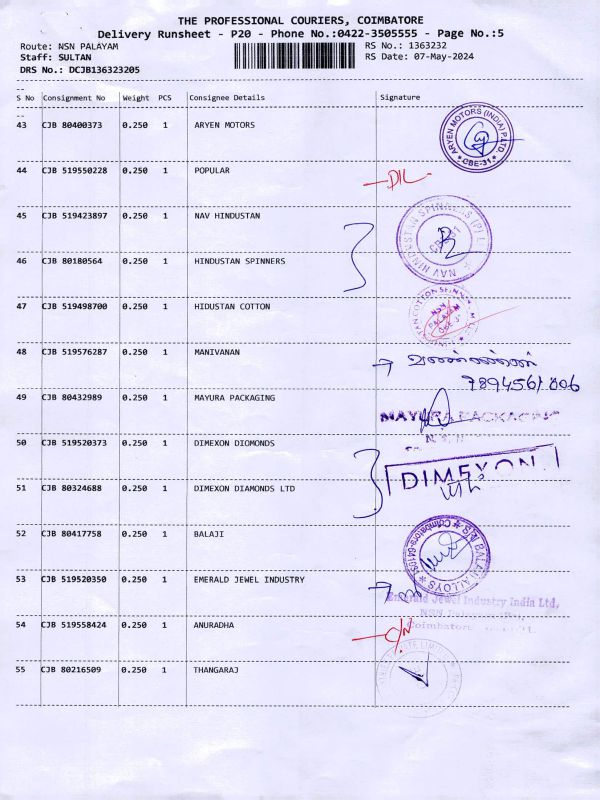 THE PROFESSIONAL COURIERS, COIMBATORE
Delivery Runsheet - P20 - Phone No.:0422-3505555 - Page No.:5
Route: NSN PALAYAM RS No.: 1363232
Staff: SULTAN RS Date: 07-May-2024
DRS No.: DCJB136323205
S No Consignment No Weight PCS Consignee Details Signature
43 CJB 80400373 0.250 1 ARYEN MOTORS
ARYEN MOTORS (INDIA) P LTD
CBE-31
44 CJB 519550228 0.250 1 POPULAR
45 CJB 519423897 0.250 1 NAV HINDUSTAN
NAV HINDUSTAN SPINNERS (P) L
46 CJB 80180564 0.250 1 HINDUSTAN SPINNERS
47 CJB 519498700 0.250 1 HIDUSTAN COTTON
NSN
PALAYAM
48 CJB 519576287 0.250 1 MANIVANAN
49 CJB 80432989 0.250 1 MAYURA PACKAGING
MAYURA PACKAGING
50 CJB 519520373 0.250 1 DIMEXON DIOMONDS
DIMEXON
51 CJB 80324688 0.250 1 DIMEXON DIAMONDS LTD
52 CJB 80417758 0.250 1 BALAJI
53 CJB 519520350 0.250 1 EMERALD JEWEL INDUSTRY
Emerald Jewel Industry India Ltd,
54 CJB 519558424 0.250 1 ANURADHA
55 CJB 80216509 0.250 1 THANGARAJ